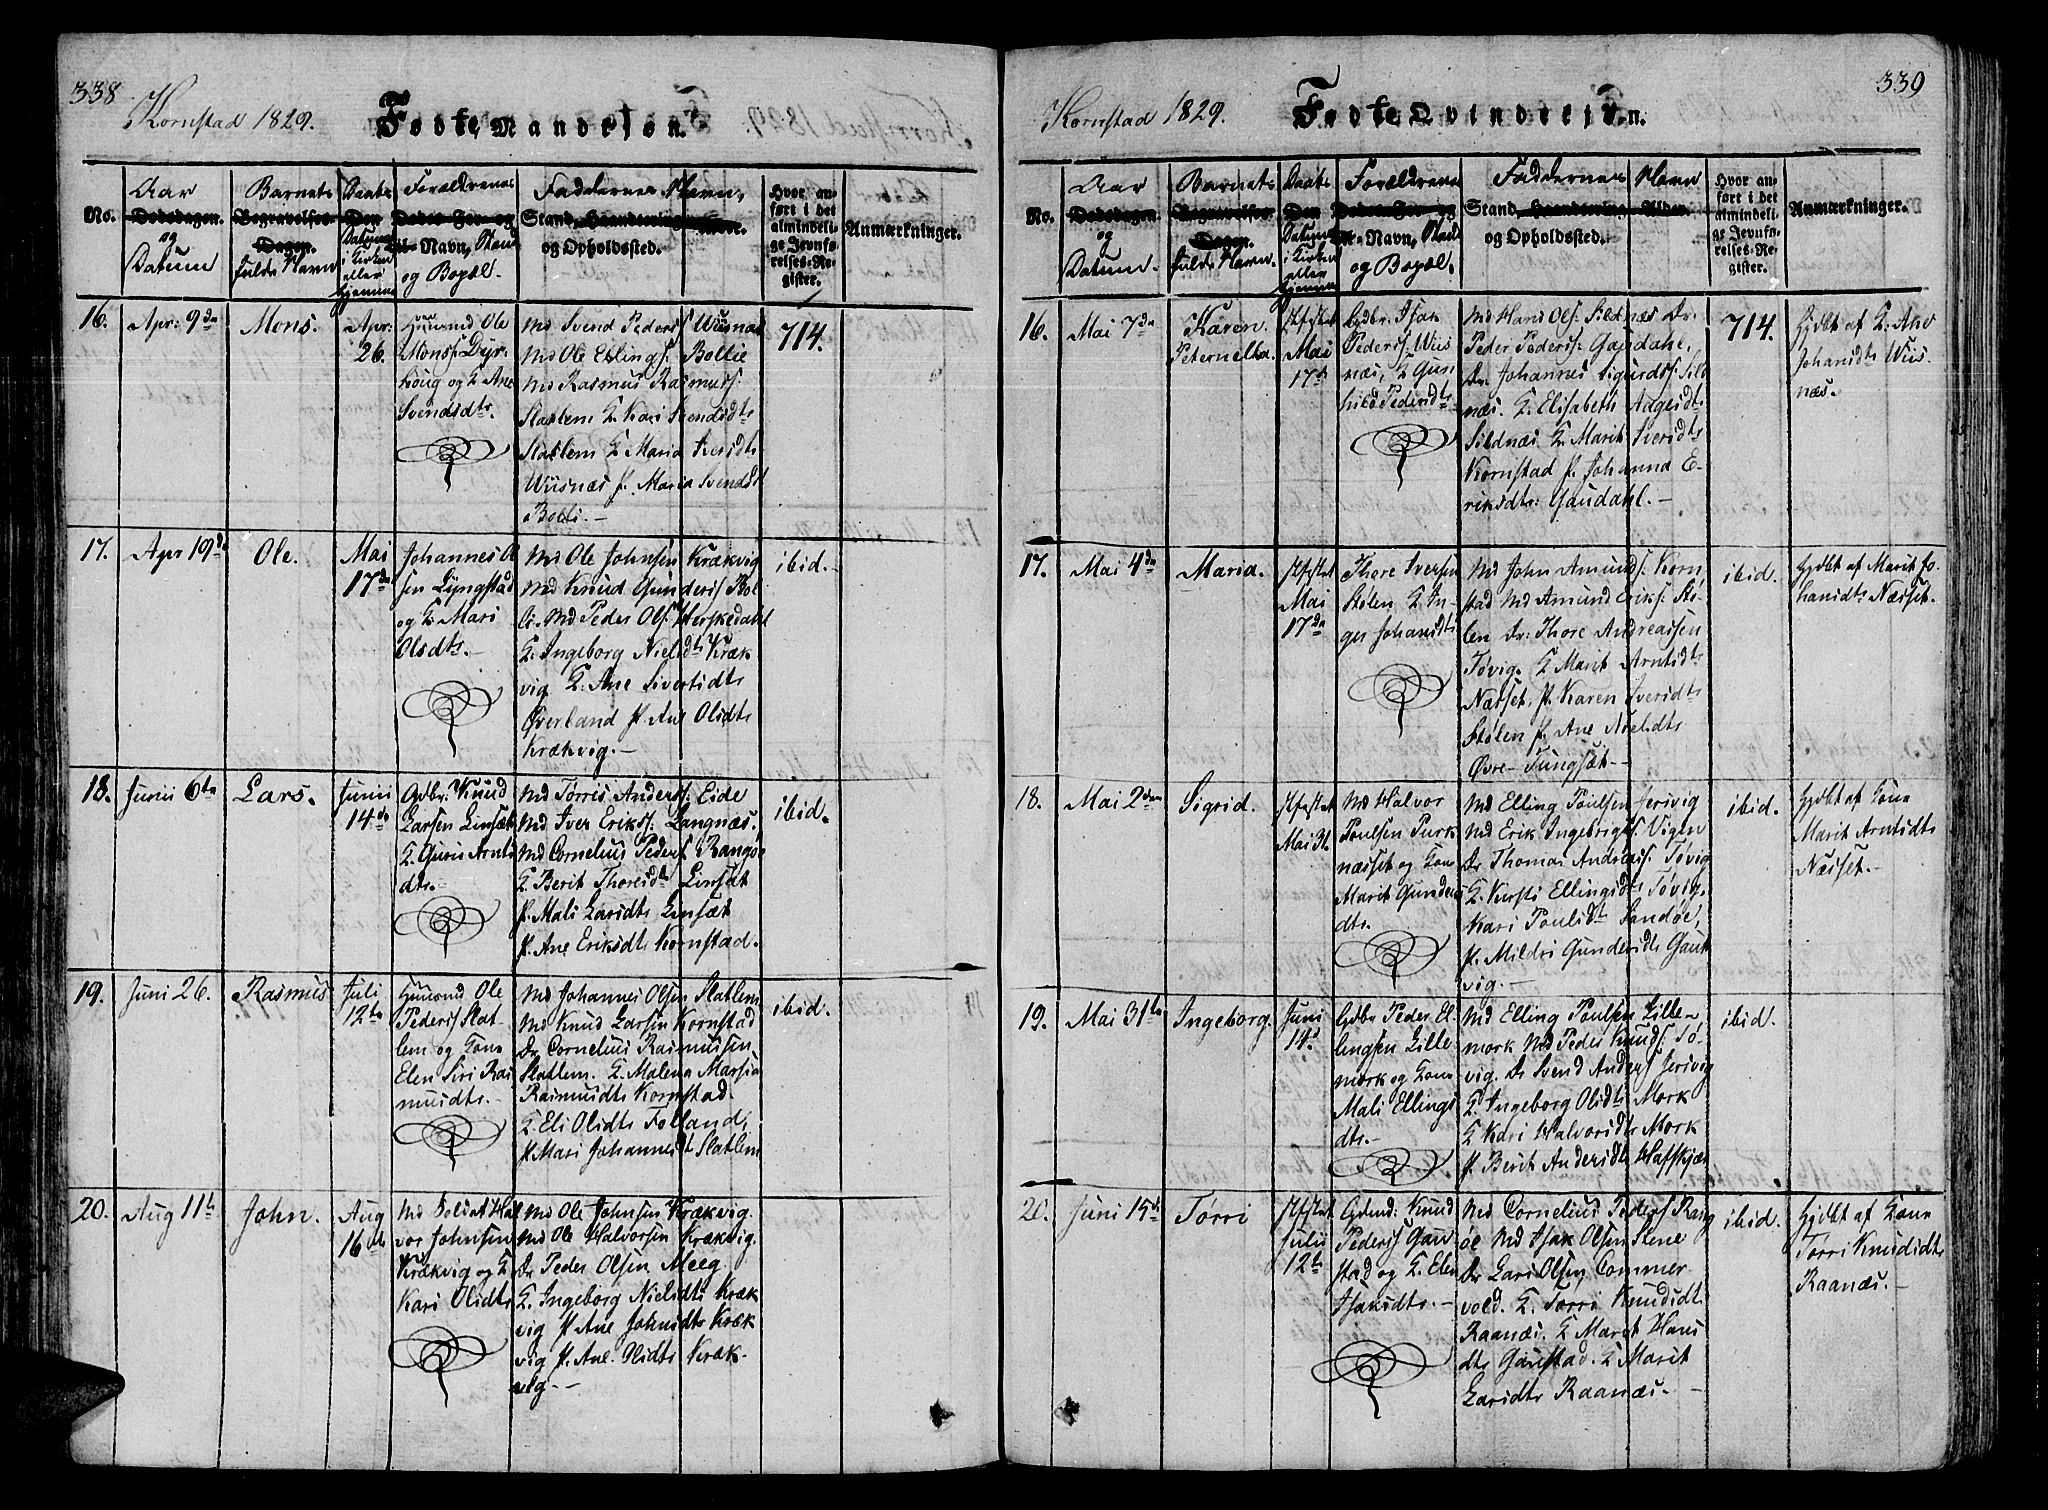 338
Kornstad 1829.
Fødte Mandkjøn.
No.
Aar
Dødsdagen.
og
Datum
Barnets
Begravelses-
Dagen.
fulde Navn
Daabs
Den
Datum
i Kirken
eller
hjemme
Forældrenes
Navn, Stand
og Bopæl.
Faddernes Navn,
Stand, Haandtering
og Opholdssted.
Hvor an-
ført i det
almindeli-
ge Jevnfø-
relses-Re-
gister.
Anmærkninger.
16.
Apr: 9de
Mons.
Apr:
26.
Huusmd Ole
Monss: Dyr-
houg og K Ane
Svendsdtr.
Md Svend Peders Wiisnæs
Md Ole Ellings: Bollie
Md Rasmus Rasmuss:
Slatlem K Kari Svendsdtr
Slatlem K Maria Iversdtr
Wiisnæs P. Maria Svendsdt
Bolli.-
714.
17.
Apr 19de
Ole.
Mai
17de
Johannes Ol
sen Lyngstad
og K Mari
Olsdtr.-
Md Ole Johnsen Krækvig
Md Knud Gunders Bol
li. Md Peder Ols: Herskedahl
K. Ingeborg Nielsdtr Kræk
vig K. Ane Sivertsdtr
Øverland P. Ane Olsdtr
Krækvig.-
ibid.
18.
Junii 6te
Lars.
Junii
14de
Gdbr: Knud
Larsen Linsæt
K. Guru Arnts
dtr.-
Md Torris Anders: Eide
Md Iver Eriks: Langnæs.
Md Cornelius Peders Rangøe
K Berit Thoresdt Linsæt
P. Mali Larsdtr Linsæt
P. Ane Eriksdtr Kornstad.
ibid.
19.
Juni 26.
Rasmus
Juli
12te
Huusmd Ole
Peders Slat
lem og Kone
Elen Siri Ras
musdtr.-
Md Johannes Olsen Slatlem
Md Knud Larsen Kornstad
Dr Cornelius Rasmussen
Slatlem. K. Malena Marsia
Rasmusdtr Kornstad.
K. Eli Olsdtr Folland,
P Mari Johannesdt Slatlem
ibid.
20.
Aug 11te
John.
Aug
16de
Md Soldat Hal
vor Johnsen
Krækvig og K
Kari Olsdtr
Md Ole Johnsen Krækvig.
Md Ole Halvorsen Krækvig.
Dr Peder Olsen Meeg
K. Ingeborg Nielsdtr Kræk
vig P. Ane Johnsdtr Kræk
vig P. Ane Olsdtr Kræk-
vig.-
339
Kornstad 1829.
Fødte Qvindekjøn.
No.
Aar
Dødsdagen.
og
Datum.
Barnets
Begravelses-
Dagen.
fulde Navn.
Daabs
Den
Datum
i Kirken
eller
hjemme
Forældrenes
Navn, Stand
og Bopæl.
Faddernes Navn
Stand, Haandtering Alder.
og Opholdssted.
Hvor an-
ført i det
almindeli-
ge Jevnfø-
relses-Re-
gister.
Anmærkninger.
16.
Mai 7de
Karen
Peternella.
Stfæstet
Mai
17de
Gdbr. Isak
Peders: Wiis
næs, K Gun
hild Pedersdtr
Md Hans Ols: Sildnæs Dr.
Peder Peders: Gaudahl,
Dr. Johannes Sigurds: Sild
næs. K. Elisabeth Aagesdt
Sildnæs. K. Marit Iversdtr
Kornstad P. Johanna E-
riksdtr: Gaudahl.-
714.
Hjdbt af K. Ane
Johansdtr Wiis
næs.
17.
Mai 4de
Maria.
Stfæstet
Mai
17de
Thore Iversen
Stølen K In-
ger Johansdtr
Md John Amunds: Korn
stad Md Amund Eriks: Stø-
len Dr: Thore Andreassen
Tøvig. K Marit Arntsdtr
Næsset, P. Karen Iversdtr
Stølen P. Ane Nielsdtr
Øvre-
ibid.
Hjdbt af Marit Jo
hansdtr Næsset.
18.
Mai 2den
Sigrid.
Stfæstet
Mai 31
Md Halvor
Poulsen Furk
næsset og Kone
Marit Gunders
dtr.
Md Elling Poulsen Jersvig
Md Erik Ingebrigts: Vigen
Dr Thomas Andreas: Tøvig
K. Kirsti Ellingsdtr Tøvig
Kari Poulsdtr Sandøe,
P. Mildri Gundersdtr Gaut
vig.-
ibid.
Hjdbt af Kone
Marit Arntsdtr
Næsset.-
19.
Mai 31te
Ingeborg.
Juni
14d
Gdbr Peder El
lingsen Lille
mork og Kone
Mali Ellings
dtr.-
Md Elling Poulsen Lille-
mork Md Peder Knuds: Tø-
vig. Dr Svend Anders Jersvig
K. Ingeborg Olsdtr Mork
K Kari Halvorsdtr Mork
P. Berit Andersdtr Hafskjær
ibid.
20.
Juni 15de
Torri
Stfæstet
Julii
12te
Gdmd: Knud
Peders Gau-
stad og K. Elen
Isaksdtr.-
Md Cornelius Peders Rang
øe Md Isak Olsen Stene
Dr Lars Olsen Commer
vold. K. Torri Knudsdt.
Raanæs. K Maret Hans
dtr Gaustad. K Marit
Larsdtr Raanæs.-
ibid.
Hjdbt af Kone
Torri Knudsdtr
Raanæs.-